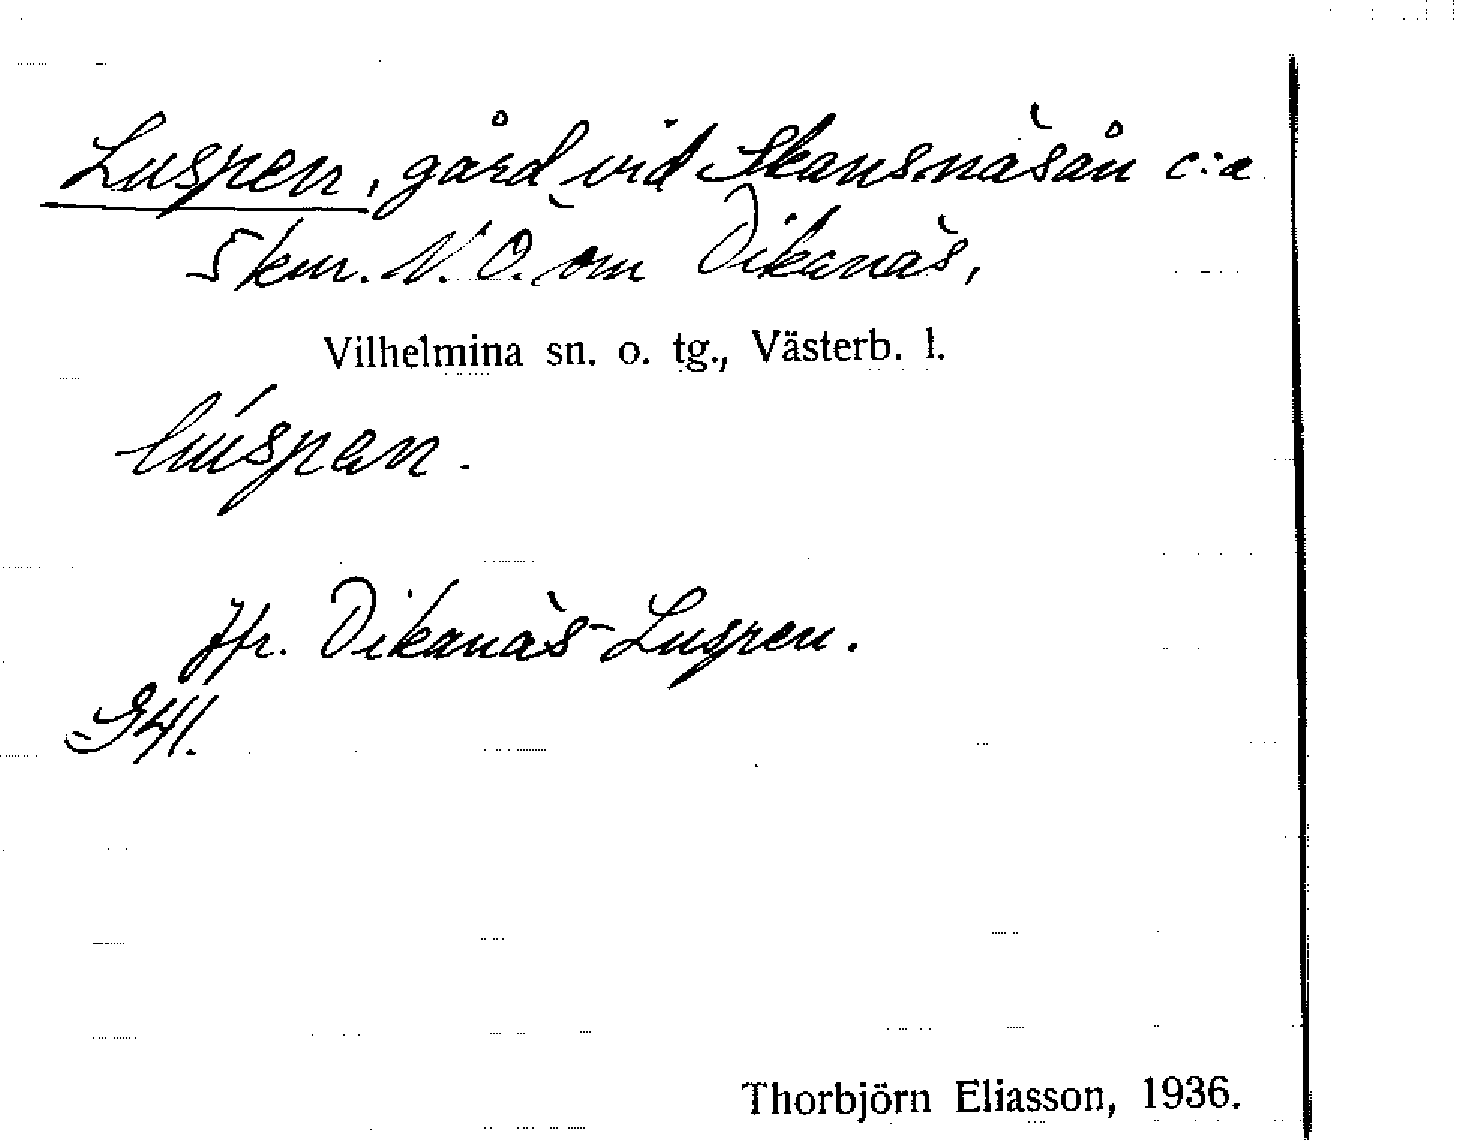 Luspen, gård vid Skansnäsån c:a
5 km. N.Ö. om Dikanäs,
Vilhelmina sn. o. tg., Västerb. l.
lúspan.
Jfr. Dikanäs-Luspen.
G41.
Thorbjörn Eliasson, 1936.